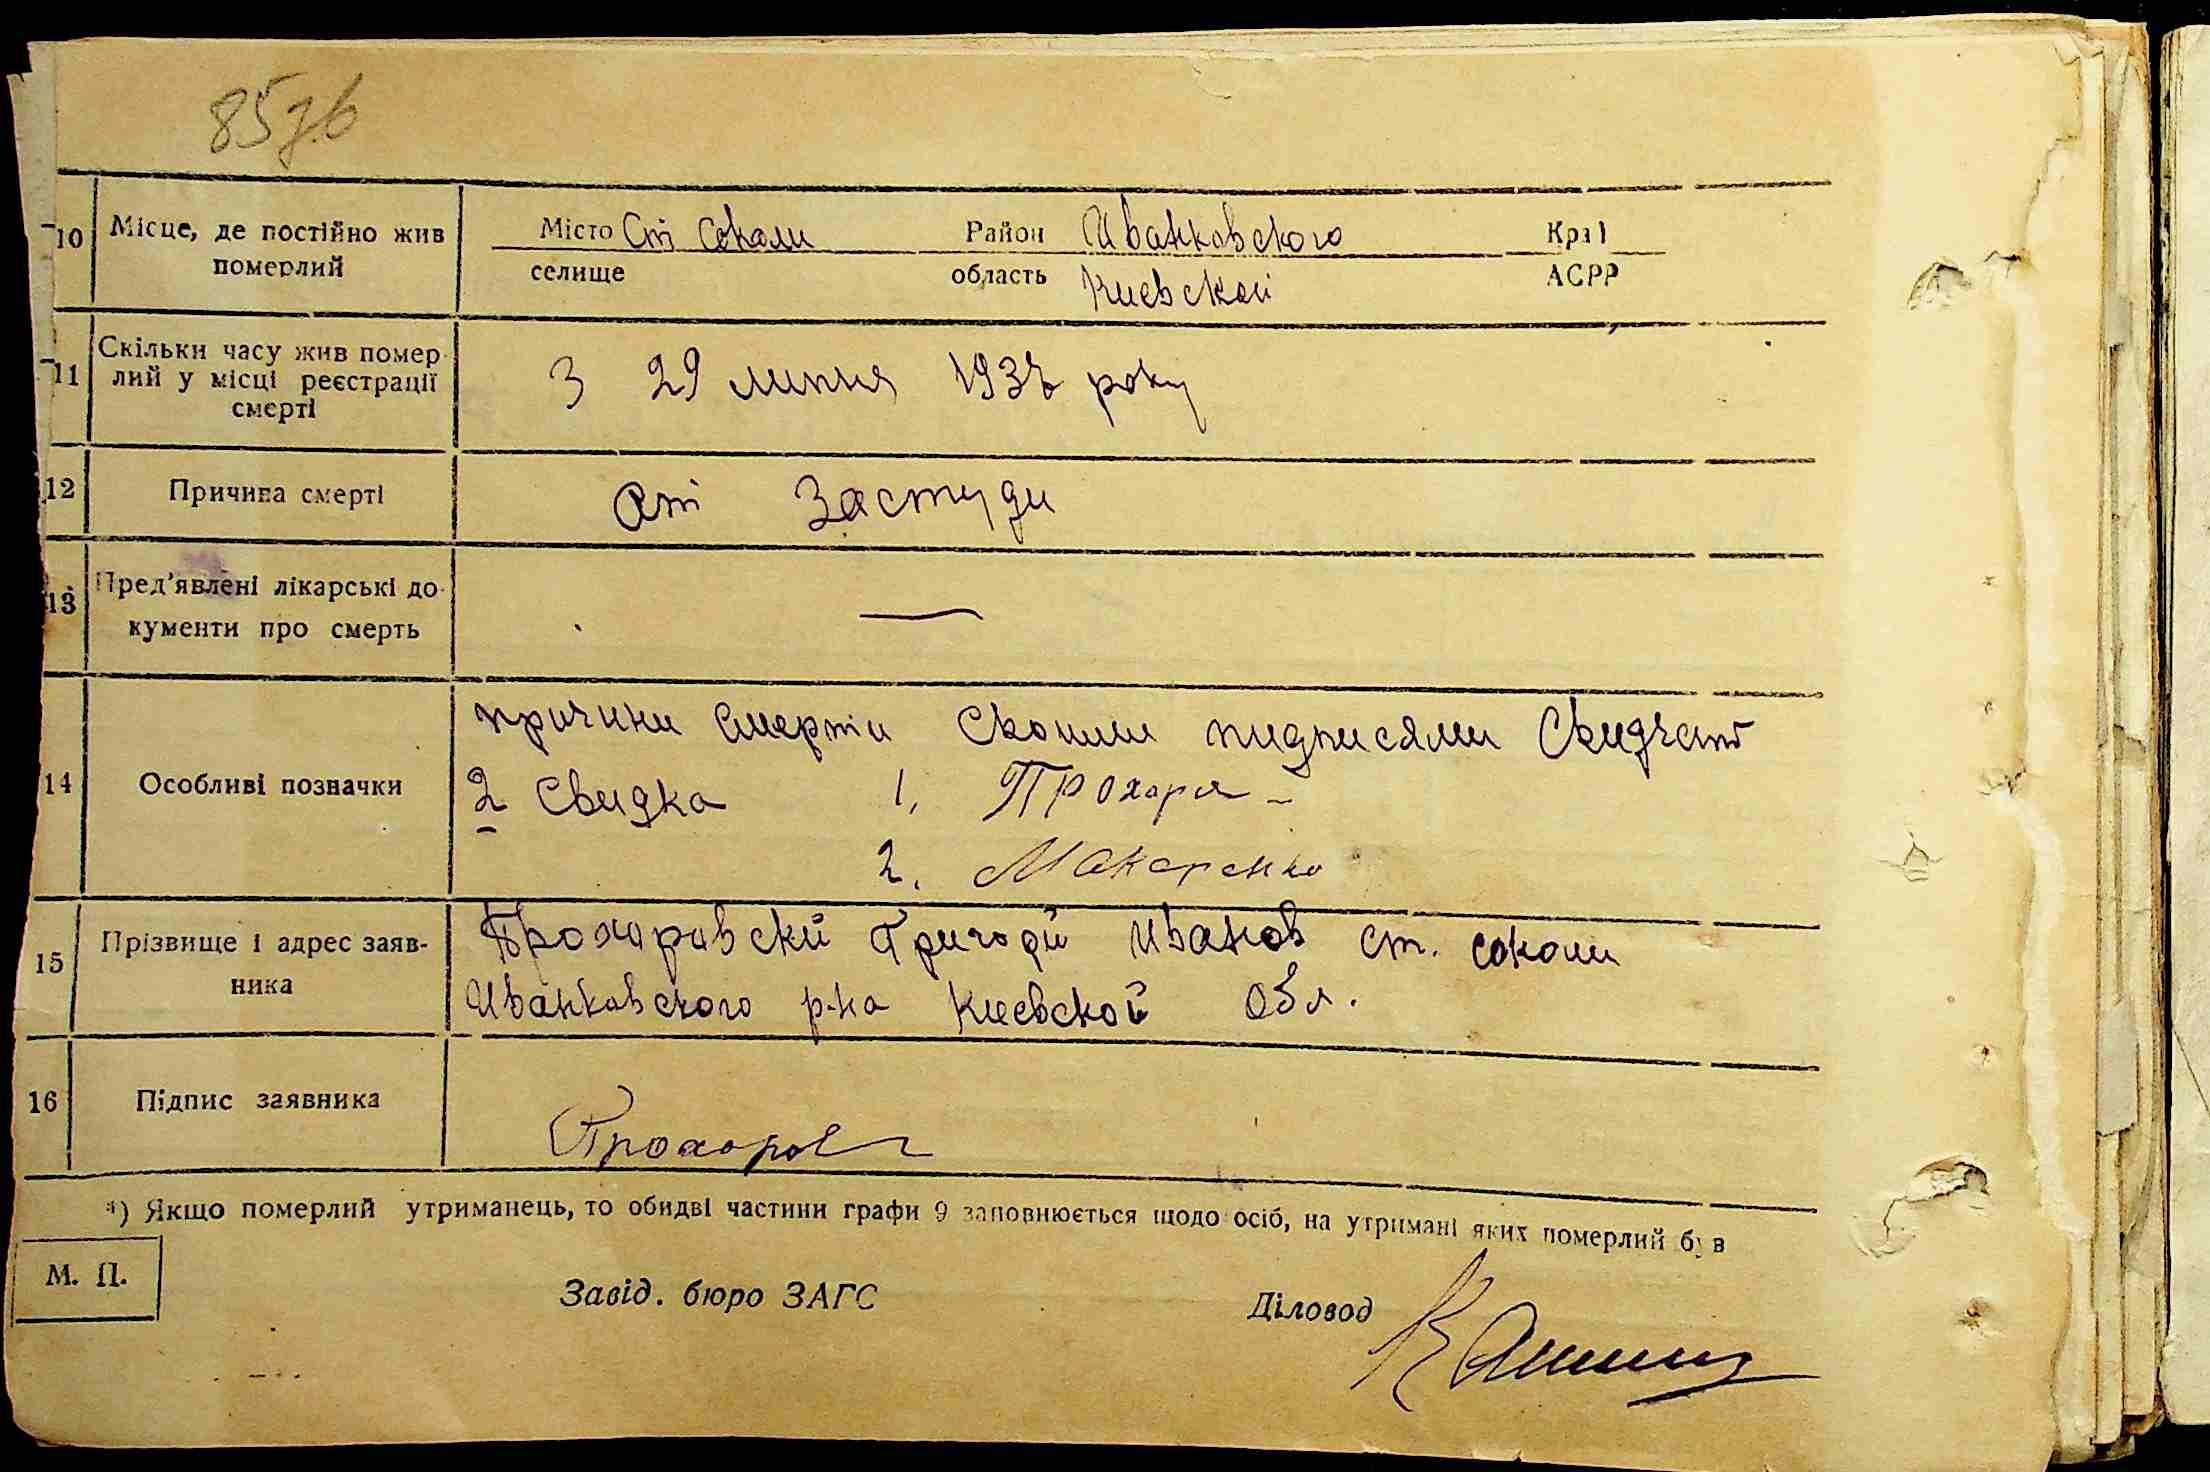 85 зв
10 Місце, де постійно жив померлий
Місто Ст Соколи Район Иванковского Край
селище область Киевской АСРР
11 Скільки часу жив помер-
лий у місці реєстрації
смерті
З 29 липня 1937 року
12 Причина смерті
От Застуди
13 Пред'явлені лікарські до-
кументи про смерть
—
14 Особливі позначки
причини смерти своими пидписями Свидчат
2 свидка 1. Прохоря
2. Макаренко
15 Прізвище і адрес заяв-
ника
Прохоровский Григорий Иванов ст. соколи
Иванковского р-на Киевской Обл.
16 Підпис заявника
Прохоров
*) Якщо померлий утриманець, то обидві частини графи 9 заповнюється щодо осіб, на утримані яких померлий був
М. П.
Завід. бюро ЗАГС Діловод